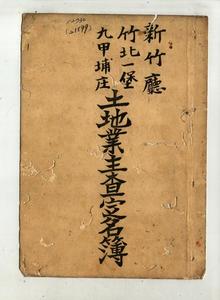 新竹廳
竹北一堡
九甲埔庄
土地業主查定名簿